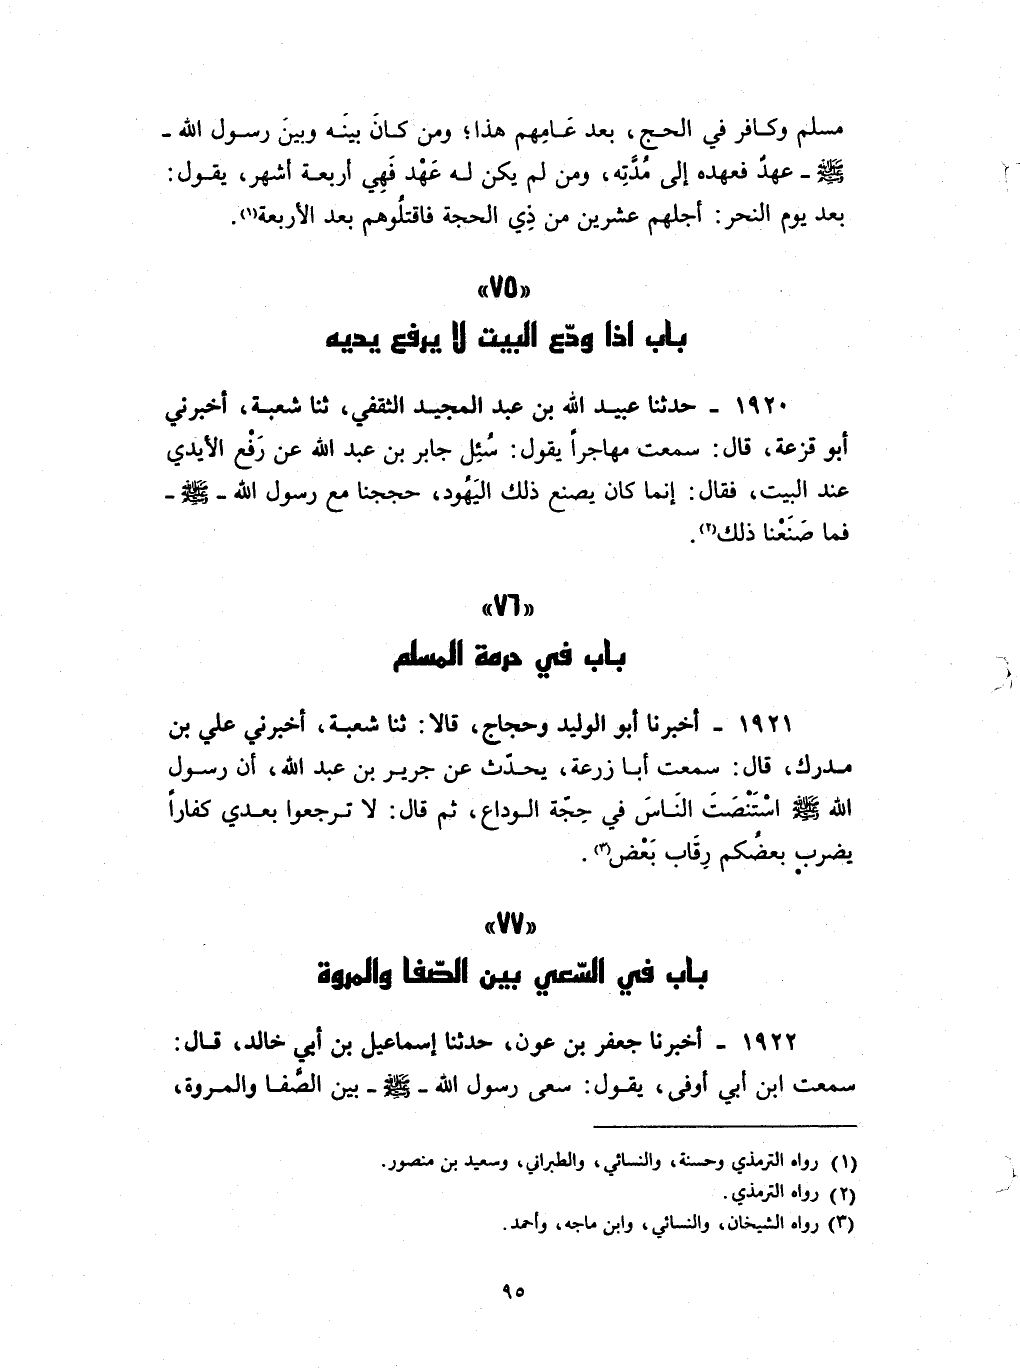 مسلم وكافر في الحج، بعد عَامِهم هذا؛ ومن كانَ بينَه وبينَ رسول الله ـ
ﷺ ـ عهدٌ فعهده إلى مُدَّتِه، ومن لم يكن له عَهْد فَهِي أربعة أشهر، يقول:
بعد يوم النحر: أجلهم عشرين من ذِي الحجة فاقتلُوهم بعد الأربعة(١).
«٧٥»
باب اذا ودّع البيت لا يرفع يديه
١٩٢٠ ـ حدثنا عبيد الله بن عبد المجيد الثقفي، ثنا شعبة، أخبرني
أبو قزعة، قال: سمعت مهاجراً يقول: سُئِل جابر بن عبد الله عن رَفْع الأيدي
عند البيت، فقال: إنما كان يصنع ذلك اليَهُود، حججنا مع رسول الله ـ ﷺ ـ
فما صَنَعْنا ذلك(٢).
«٧٦»
باب في حرمة المسلم
١٩٢١ ـ أخبرنا أبو الوليد وحجاج، قالا: ثنا شعبة، أخبرني علي بن
مدرك، قال: سمعت أبا زرعة، يحدّث عن جرير بن عبد الله، أن رسول
الله ﷺ اسْتَنْصَتَ النَاسَ في حِجّة الوداع، ثم قال: لا ترجعوا بعدي كفاراً
يضرب بعضُكم رِقَاب بَعْض(٣).
«٧٧»
باب في السّعي بين الصّفا والمروة
١٩٢٢ ـ أخبرنا جعفر بن عون، حدثنا إسماعيل بن أبي خالد، قال:
سمعت ابن أبي أوفى، يقول: سعى رسول الله ـ ﷺ ـ بين الصَّفا والمروة،
(١) رواه الترمذي وحسنة، والنسائي، والطبراني، وسعيد بن منصور.
(٢) رواه الترمذي.
(٣) رواه الشيخان، والنسائي، وابن ماجه، وأحمد.
٩٥